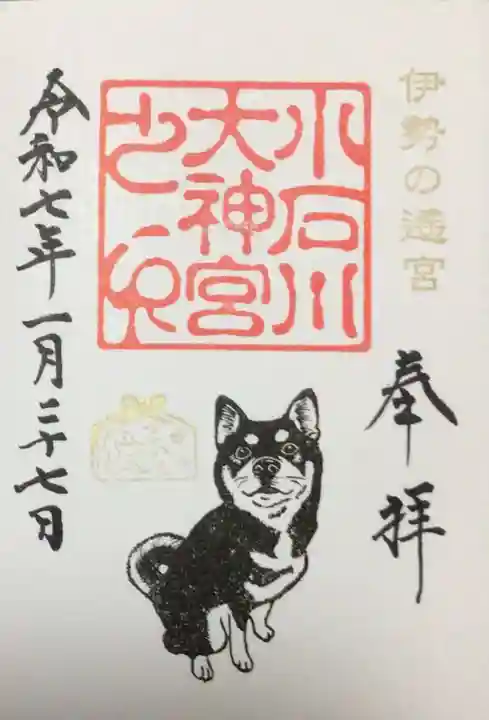 伊勢の遙宮
奉拝
小石川
大神宮
之印
令和七年一月二十七日